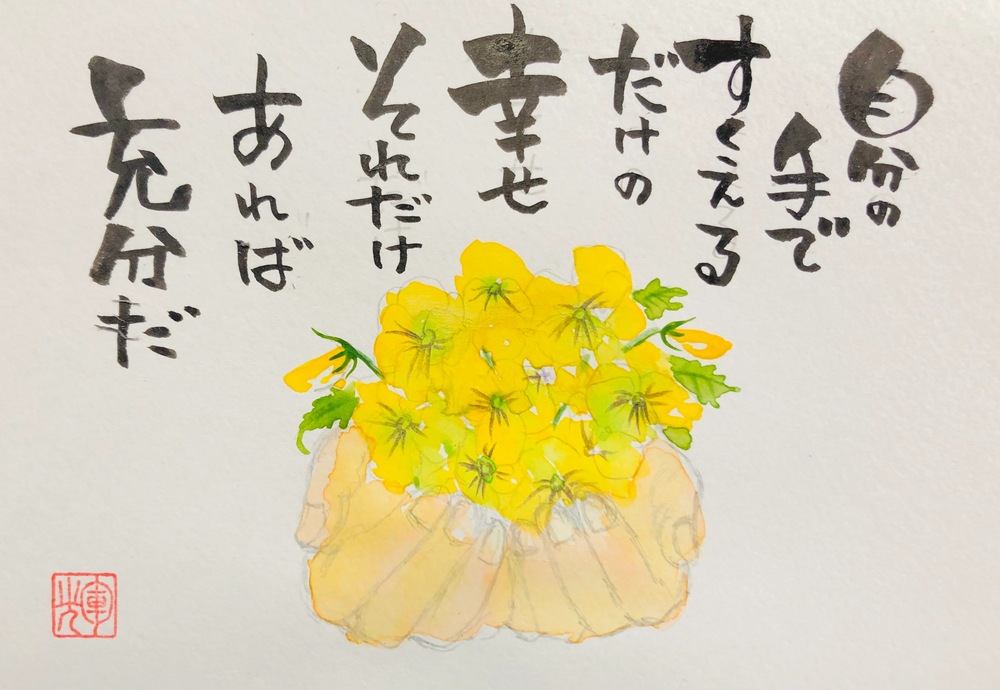 自分の
手で
すくえる
だけの
幸せ
それだけ
あれば
充分だ
輝